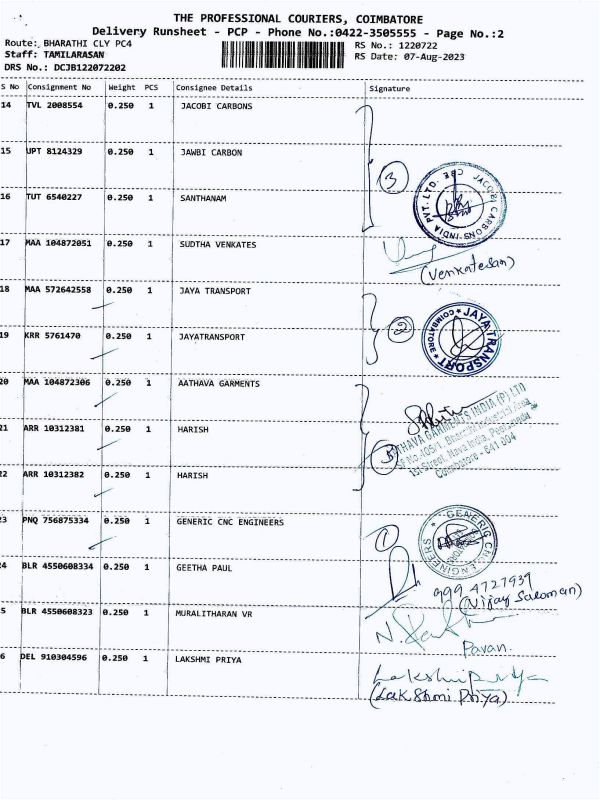 THE PROFESSIONAL COURIERS, COIMBATORE
Delivery Runsheet - PCP - Phone No.:0422-3505555 - Page No.:2
Route: BHARATHI CLY PC4
RS No.: 1220722
Staff: TAMILARASAN
RS Date: 07-Aug-2023
DRS No.: DCJB122072202
S No Consignment No Weight PCS Consignee Details Signature
14 TVL 2008554 0.250 1 JACOBI CARBONS
15 UPT 8124329 0.250 1 JAWBI CARBON
3
JACOBI CARBONS INDIA PVT. LTD. CBE
16 TUT 6540227 0.250 1 SANTHANAM
17 MAA 104872051 0.250 1 SUDTHA VENKATES
(Venkatesan)
18 MAA 572642558 0.250 1 JAYA TRANSPORT
2
JAYA TRANSPORT COIMBATORE
19 KRR 5761470 0.250 1 JAYATRANSPORT
20 MAA 104872306 0.250 1 AATHAVA GARMENTS
21 ARR 10312381 0.250 1 HARISH
THAVA GARMENTS INDIA (P) LTD
1st Street, Nava India,
Coimbatore - 641 004
22 ARR 10312382 0.250 1 HARISH
23 PNQ 756875334 0.250 1 GENERIC CNC ENGINEERS
1
GENERIC CNC ENGINEERS
24 BLR 4550608334 0.250 1 GEETHA PAUL
999 4727939
(Vijay Salomon)
5 BLR 4550608323 0.250 1 MURALITHARAN VR
Pavan.
6 DEL 910304596 0.250 1 LAKSHMI PRIYA
Lakshmi Priya
(Lakshmi Priya)